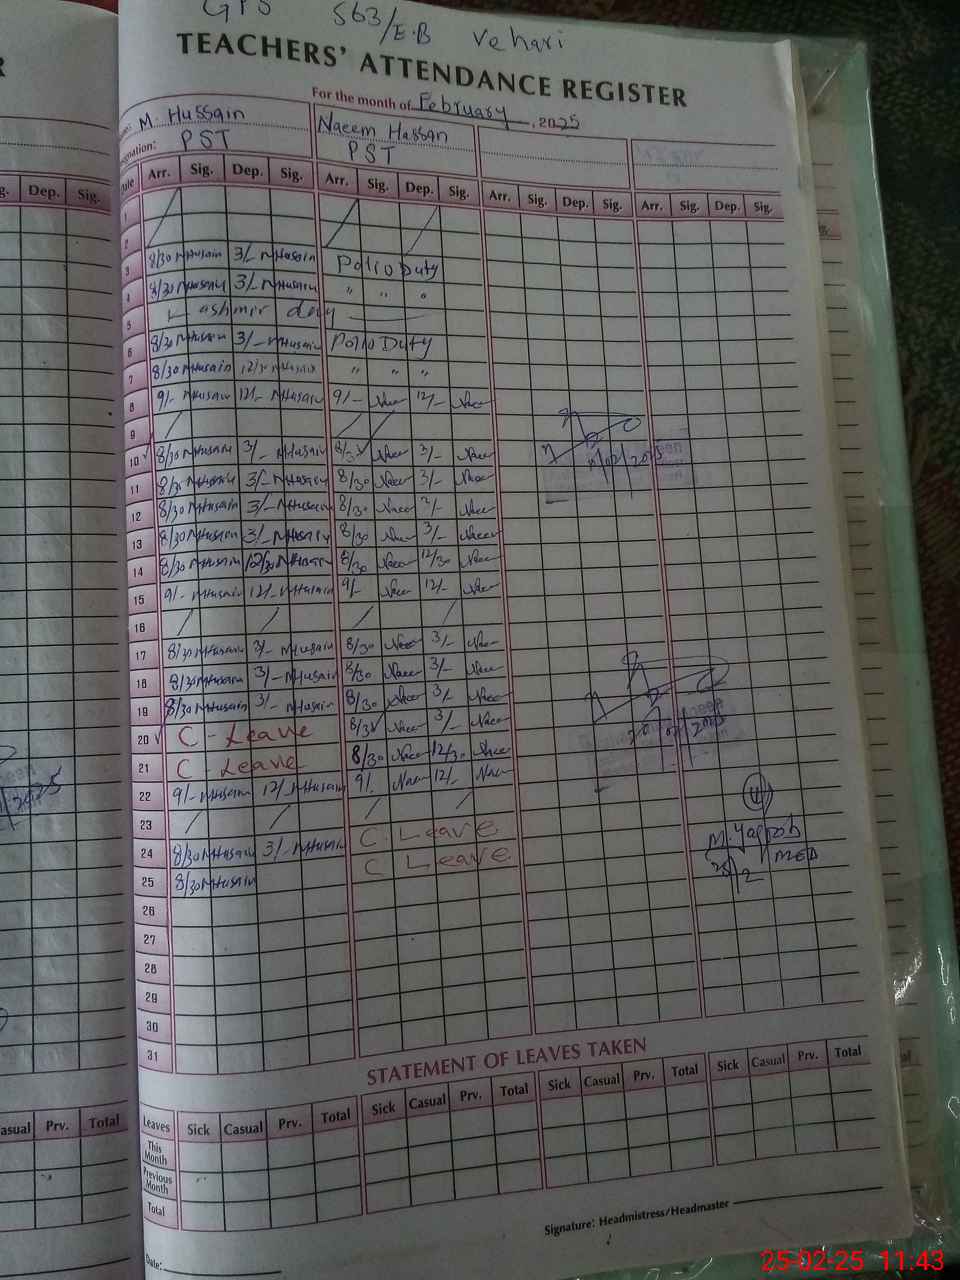 GPS 563/E.B Vehari
TEACHERS' ATTENDANCE REGISTER
For the month of February, 2025
M. Hussain Naeem Hassan
Designation: PST PST
Date Arr. Sig. Dep. Sig. Arr. Sig. Dep. Sig. Arr. Sig. Dep. Sig. Arr. Sig. Dep. Sig.
1
2
3 8/30 MHusain 3/- MHusain Polio Duty
4 8/30 MHusain 3/- MHusain " " "
5 Kashmir day
6 8/30 MHusain 3/- MHusain Polio Duty
7 8/30 MHusain 12/30 MHusain " " "
8 9/- MHusain 12/- MHusain 9/- Naee 12/- Naee
9
10 8/30 MHusain 3/- MHusain 8/30 Naee 3/- Naee
11 8/30 MHusain 3/- MHusain 8/30 Naee 3/- Naee
12 8/30 MHusain 3/- MHusain 8/30 Naee 3/- Naee
13 8/30 MHusain 3/- MHusain 8/30 Naee 3/- Naee
14 8/30 MHusain 12/30 MHusain 8/30 Naee 12/30 Naee
15 9/- MHusain 12/- MHusain 9/- Naee 12/- Naee
16
17 8/30 MHusain 3/- MHusain 8/30 Naee 3/- Naee
18 8/30 MHusain 3/- MHusain 8/30 Naee 3/- Naee
19 8/30 MHusain 3/- MHusain 8/30 Naee 3/- Naee
20 C - Leave 8/30 Naee 3/- Naee
21 C - Leave 8/30 Naee 12/30 Naee
22 9/- MHusain 12/- MHusain 9/- Naee 12/- Naee
23
24 8/30 MHusain 3/- MHusain C. Leave
25 8/30 MHusain C Leave
M. Yaqoob
MEA
25/2
26
27
28
29
30
31
STATEMENT OF LEAVES TAKEN
Leaves Sick Casual Prv. Total Sick Casual Prv. Total Sick Casual Prv. Total Sick Casual Prv. Total
This Month
Previous Month
Total
Signature: Headmistress/Headmaster
Date:
25-02-25 11:43